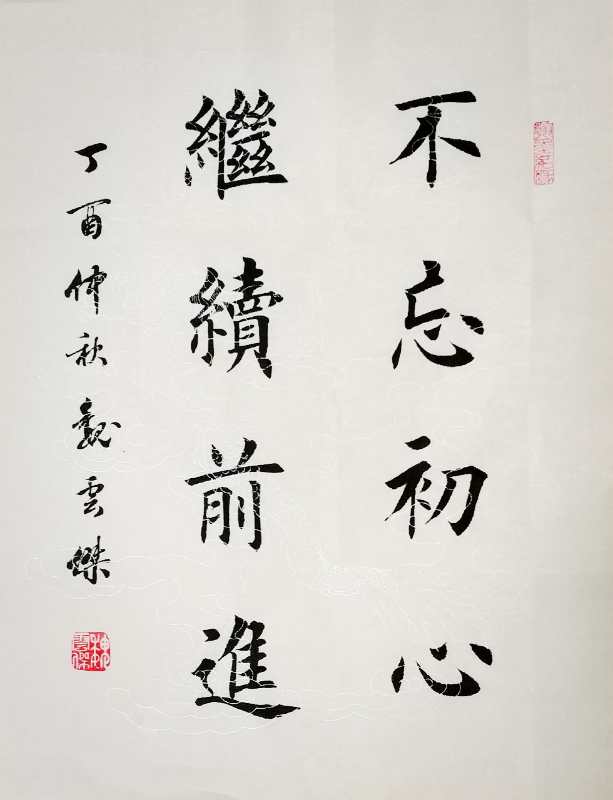 不忘初心
繼續前進
丁酉仲秋魏雲傑